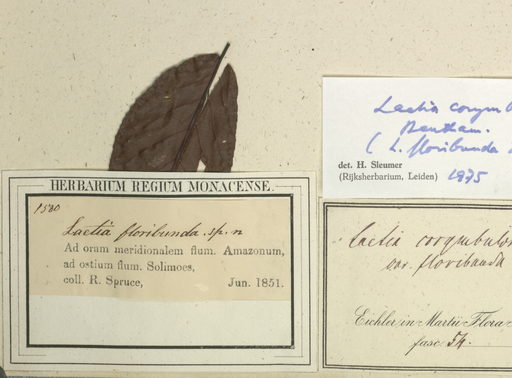 Laetia corymb
Bentham.
( L. floribunda
det. H. Sleumer
(Rijksherbarium, Leiden) 1975
HERBARIUM REGIUM MONACENSE.
1580
Laetia floribunda. sp. n
Ad oram meridionalem flum. Amazonum,
ad ostium flum. Solimoes,
coll. R. Spruce, Jun. 1851.
Laetia corymbulo
var. floribunda
Eichler in Martii Flora
fasc 54.